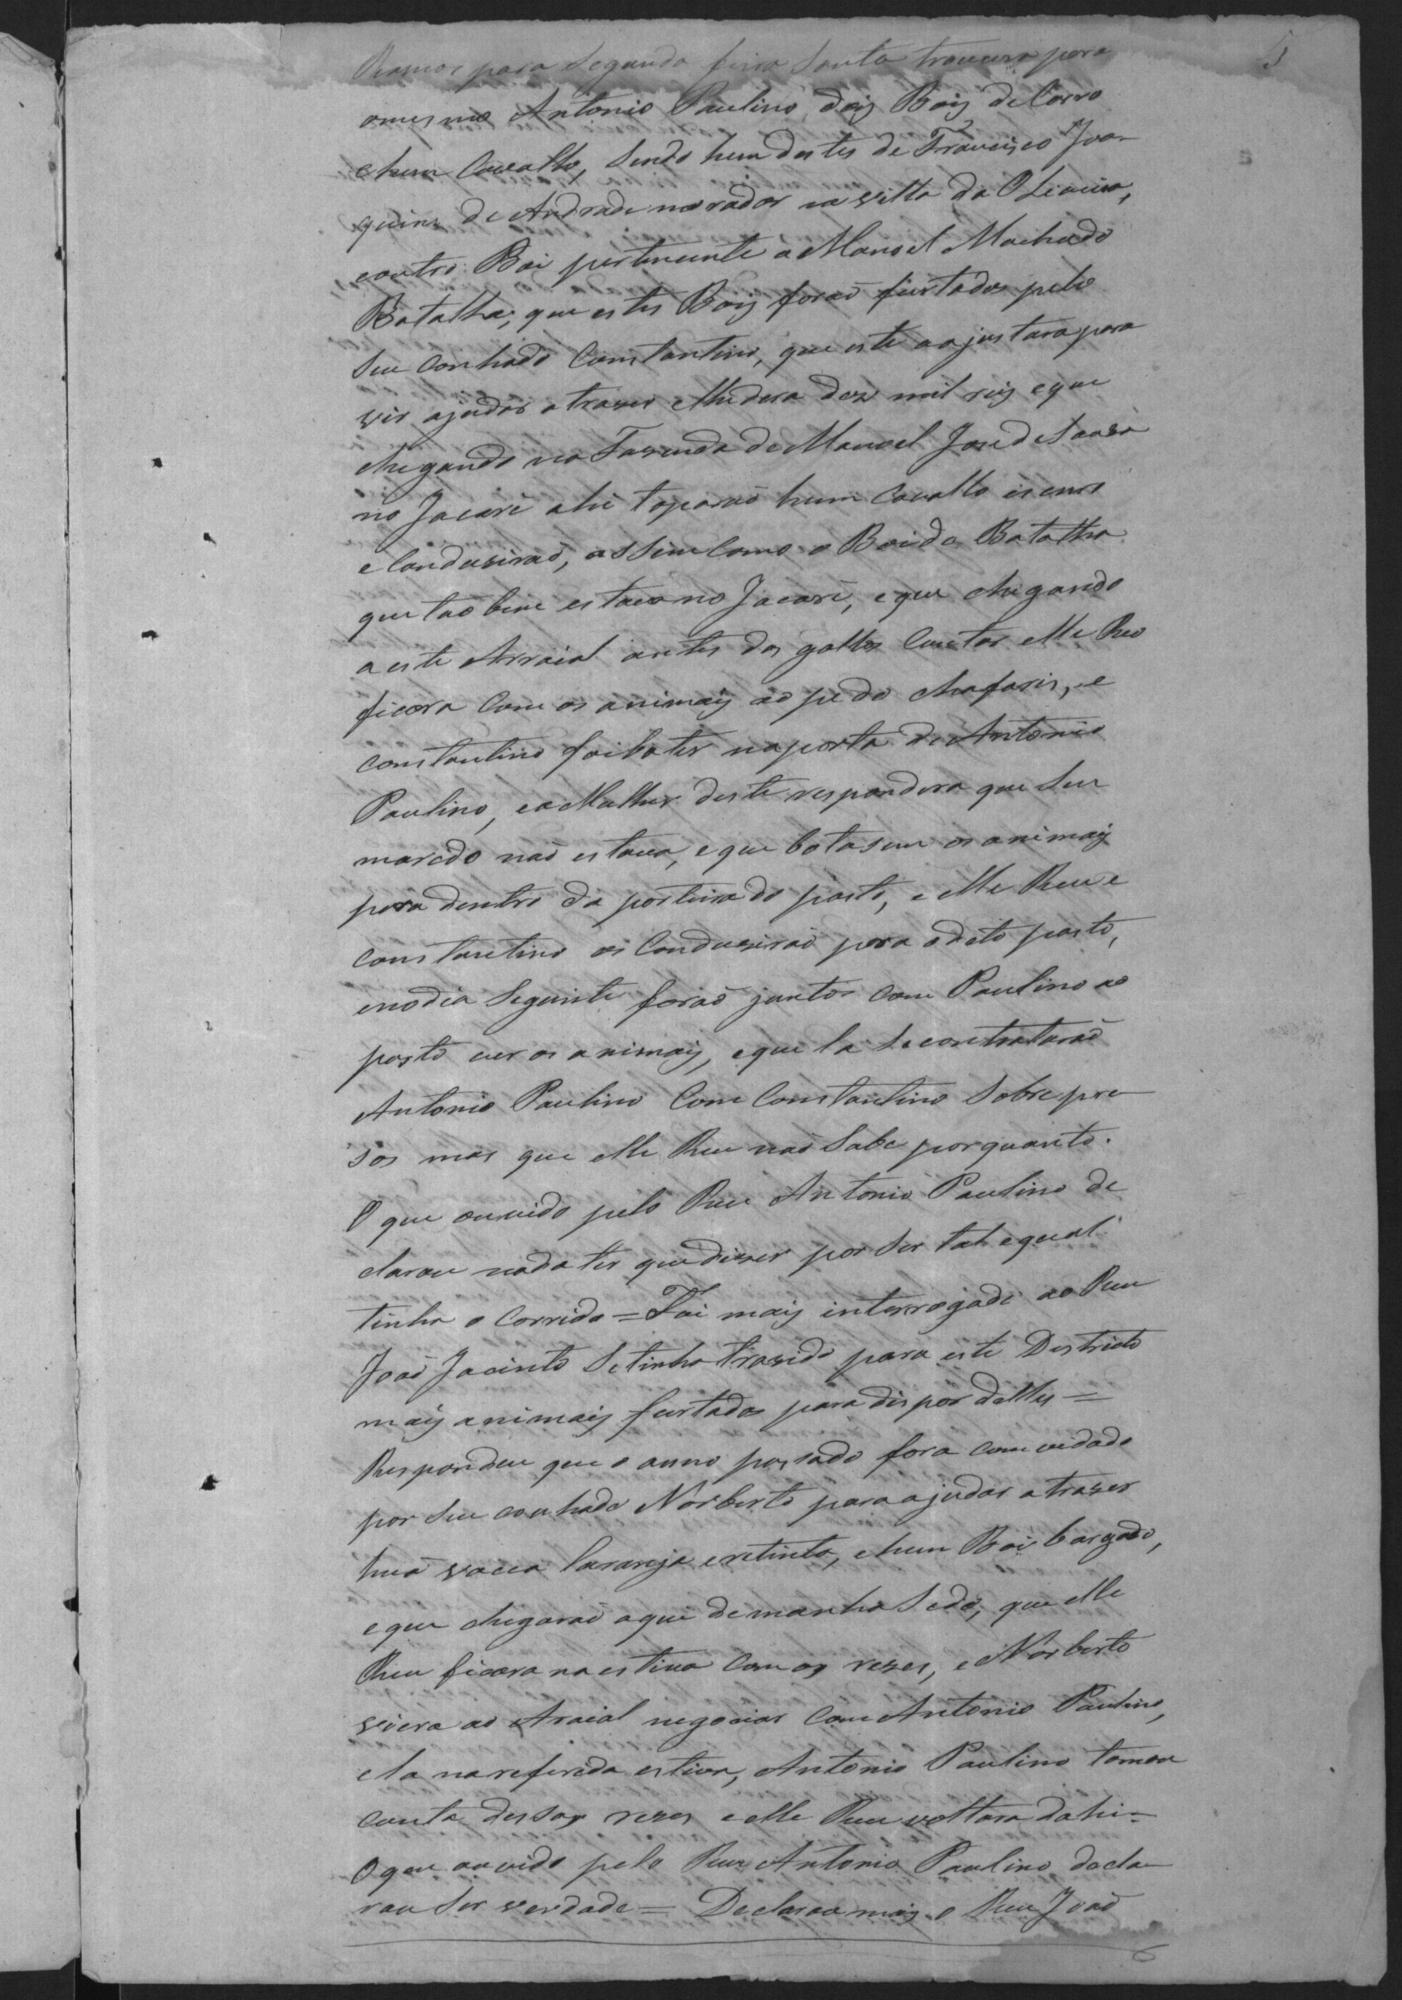 Ramos para Segunda feira Santa trouxera para
omesmo Antonio Paulino, dois Bois de Carro
ehum Cavallo, sendo hum destes de Francisco Joa-
quim de Andrade morador na villa da Oliveira,
eoutro Boi pertencente a Manoel Machado
Batalha; que estes Bois foraõ furtados pelo
Seu Conhado Constantino, que este o ajustara para
vir ajudar atrazer elhedera dez mil reis eque
chegando na Fazenda de Manoel José de Souza
no Jacaré ahi toparaõ hum Cavallo
e Conduziraõ, assim Como o Boi do Batalha
que taõ bem estava no Jacaré, eque chegando
a este Arraial antes dos gallos Cantar elle Reo
ficara Com os animais ao pe do chafaris, e
Constantino foi bater naporta de Antonio
Paulino, ea Mulher deste respondera que Seu
marido naõ estava, eque botasem os animais
para dentro da porteira do pasto, e elle Reu e
Constantino os Conduziraõ para o dito pasto,
enodia Seguinte foraõ juntos com Paulino ao
pasto ver os animais, eque la Secontrataraõ
Antonio Paulino Com Constantino Sobre pre
sos mas que elle Reu naõ Sabe porquanto.
O que ouvido pelo Reu Antonio Paulino de
clarou nada ter que dizer por Ser tal equal
tinha o corrido = Foi mais interrogado ao Reu
Joaõ Jacinto Setinha trazido para este Destricto
mais animais furtados para dispor delles =
Respondeu que o anno passado fora com vidado
por Seu conhado Norberto para ajudar atrazer
huã vacca laranja eretinta, ehum Boi bargado,
eque chegaraõ aqui demanhã Sedo, que elle
Reu ficara na estiva Com as rezes, e Norberto
viera ao Araial negociar Com Antonio Paulino,
ela nareferida estiva, Antonio Paulino tomou
conta dessas rezes eelle Reu voltara dahi =
Oque ouvido pelo Reu Antonio Paulino decla
rou Ser verdade = Declarou mais o Reu Joaõ